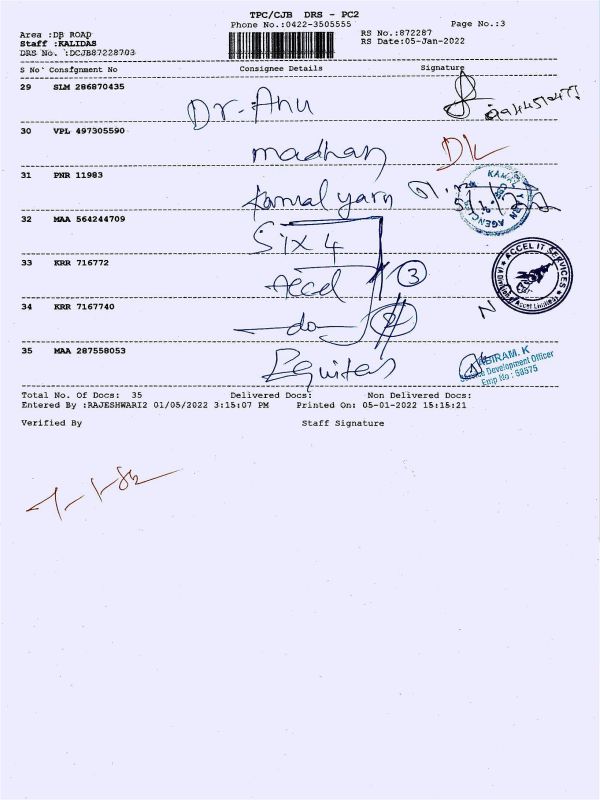 TPC/CJB DRS - PC2
Phone No.:0422-3505555
Page No.:3
Area :DB ROAD
RS No.:872287
Staff :KALIDAS
RS Date:05-Jan-2022
DRS No. :DCJB87228703
S No Consignment No Consignee Details Signature
29 SLM 286870435 Dr. Anu
30 VPL 497305590 madhan
31 PNR 11983 Kamal yarn
32 MAA 564244709 Six 4
33 KRR 716772 Accel 3
34 KRR 7167740 do
35 MAA 287558053 Equitas
ACCEL IT SERVICES
Accel Limited
ABIRAM. K
Service Development Officer
Emp No : 58575
Total No. Of Docs: 35 Delivered Docs: Non Delivered Docs:
Entered By :RAJESHWARI2 01/05/2022 3:15:07 PM Printed On: 05-01-2022 15:15:21
Verified By Staff Signature